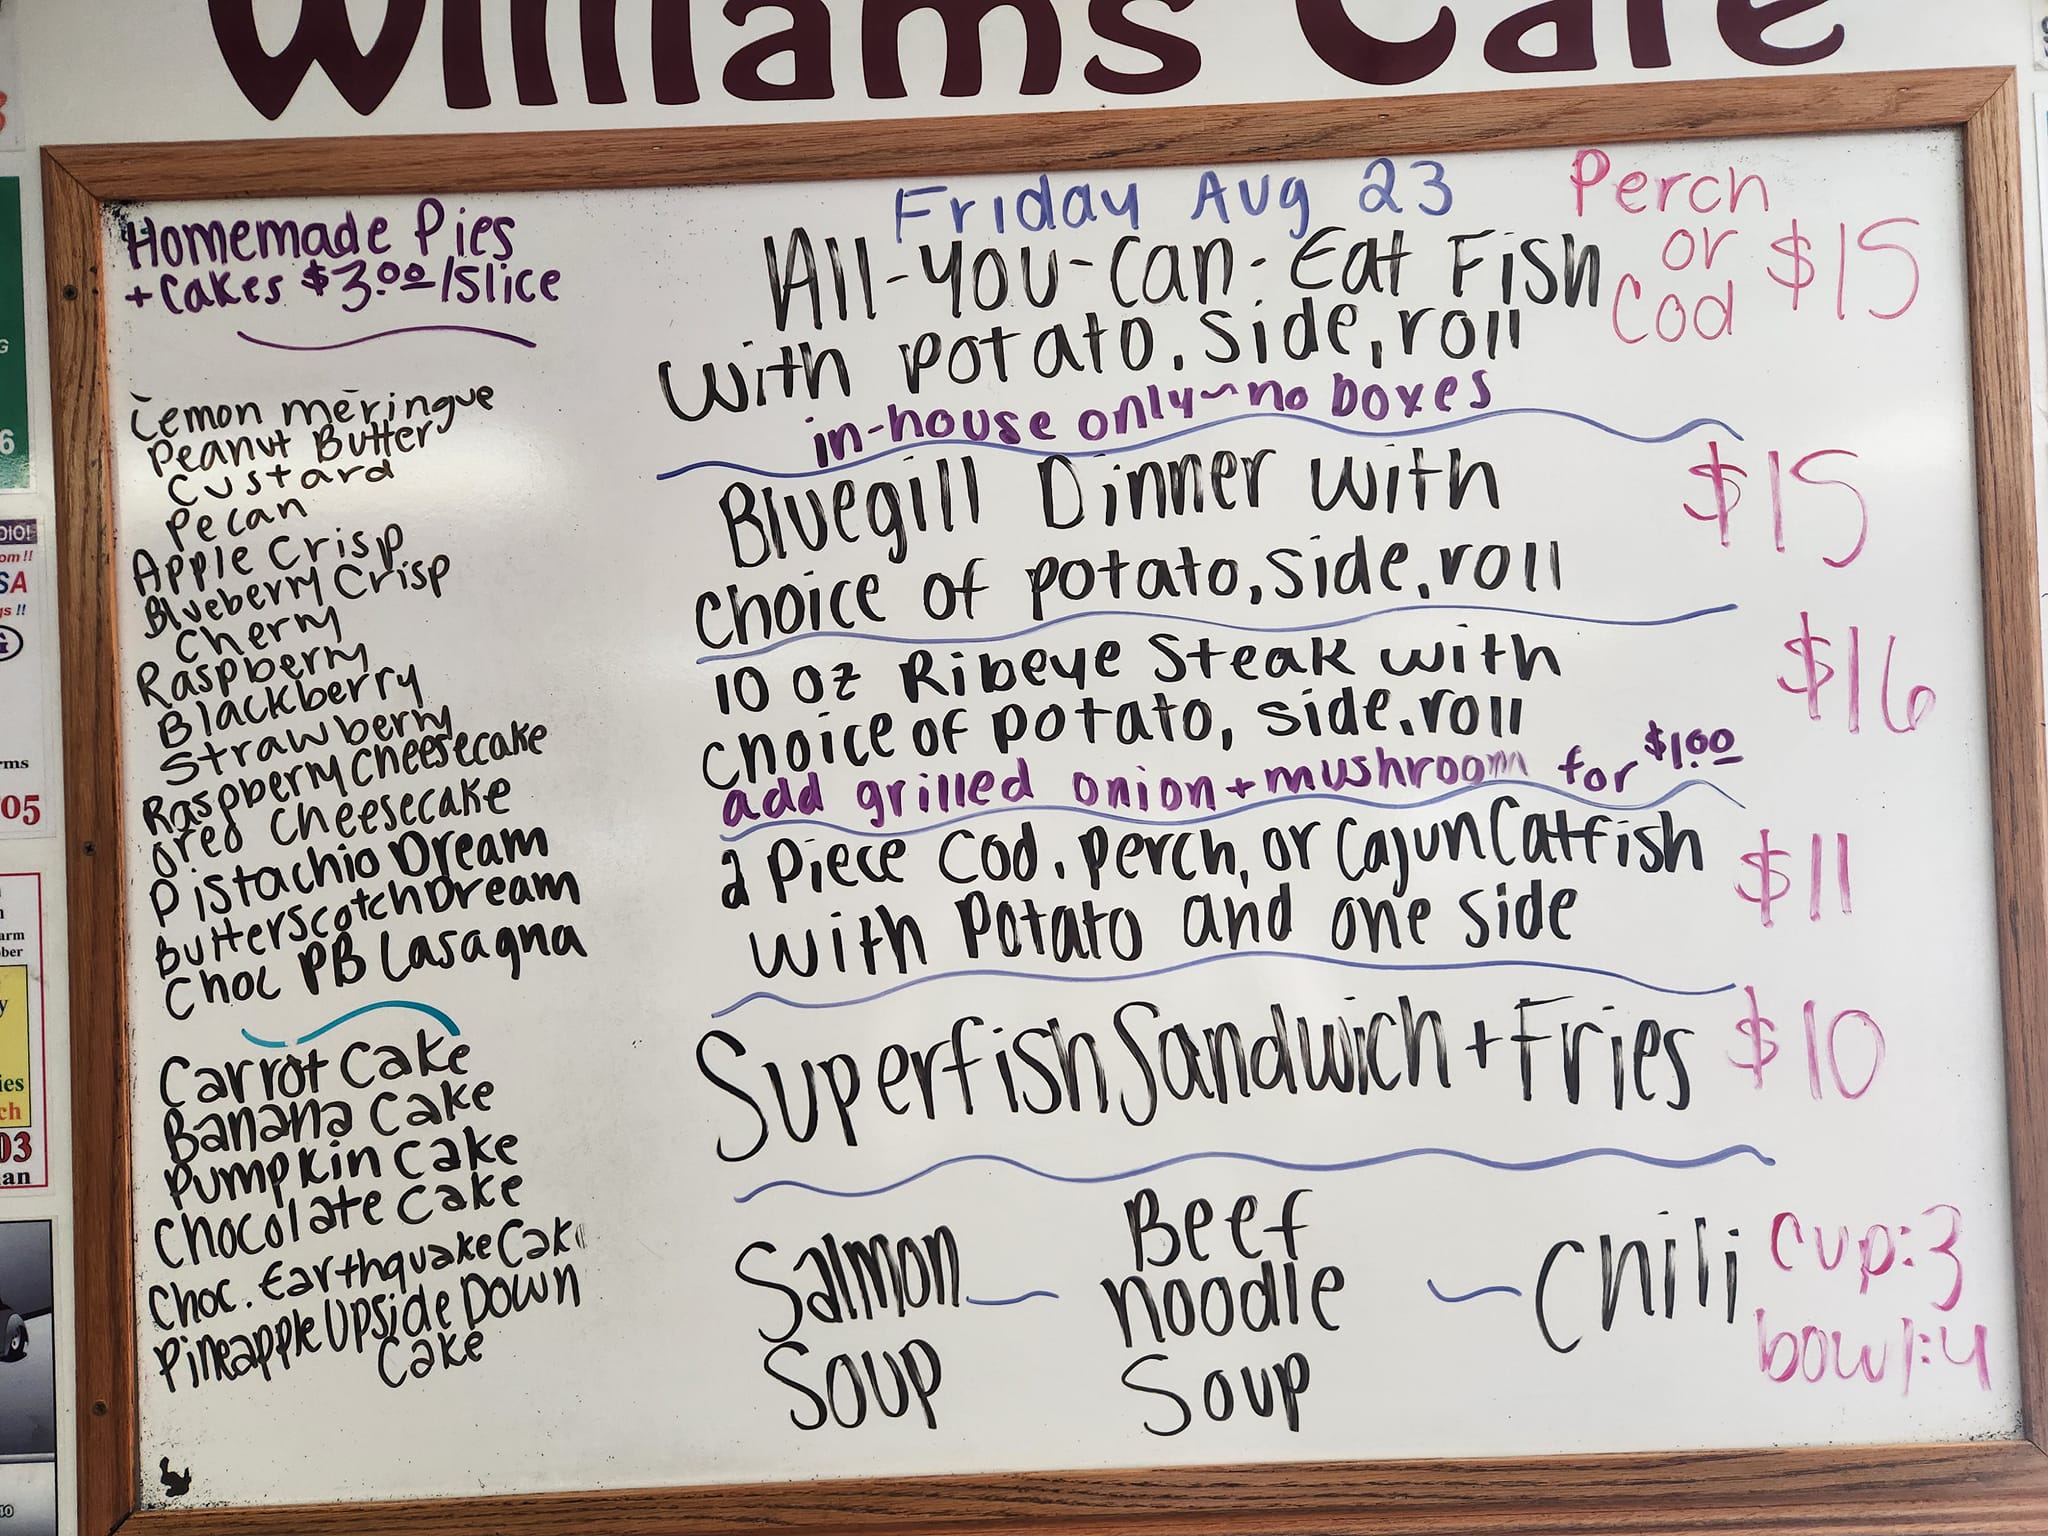 Williams Cafe
Homemade Pies
+ Cakes $3.00/Slice
Lemon meringue
Peanut Butter
Custard
Pecan
Apple Crisp
Blueberry Crisp
Cherry
Raspberry
Blackberry
Strawberry
Raspberry Cheesecake
Oreo Cheesecake
Pistachio Dream
Butterscotch Dream
Choc PB Lasagna
Carrot Cake
Banana Cake
Pumpkin Cake
Chocolate Cake
Choc. Earthquake Cake
Pineapple Upside Down
Cake
Friday Aug 23
All-you-can-Eat Fish
Perch
or
Cod
$15
with potato, side, roll
in-house only~no boxes
Bluegill Dinner with
$15
choice of potato, side, roll
10 oz Ribeye Steak with
$16
choice of potato, side, roll
add grilled onion + mushroom for $1.00
2 Piece Cod, Perch, or Cajun Catfish
$11
with Potato and one side
Superfish Sandwich + Fries
$10
Salmon
Soup
Beef
noodle
Soup
Chili
cup:3
bowl:4
6
05
arm
03